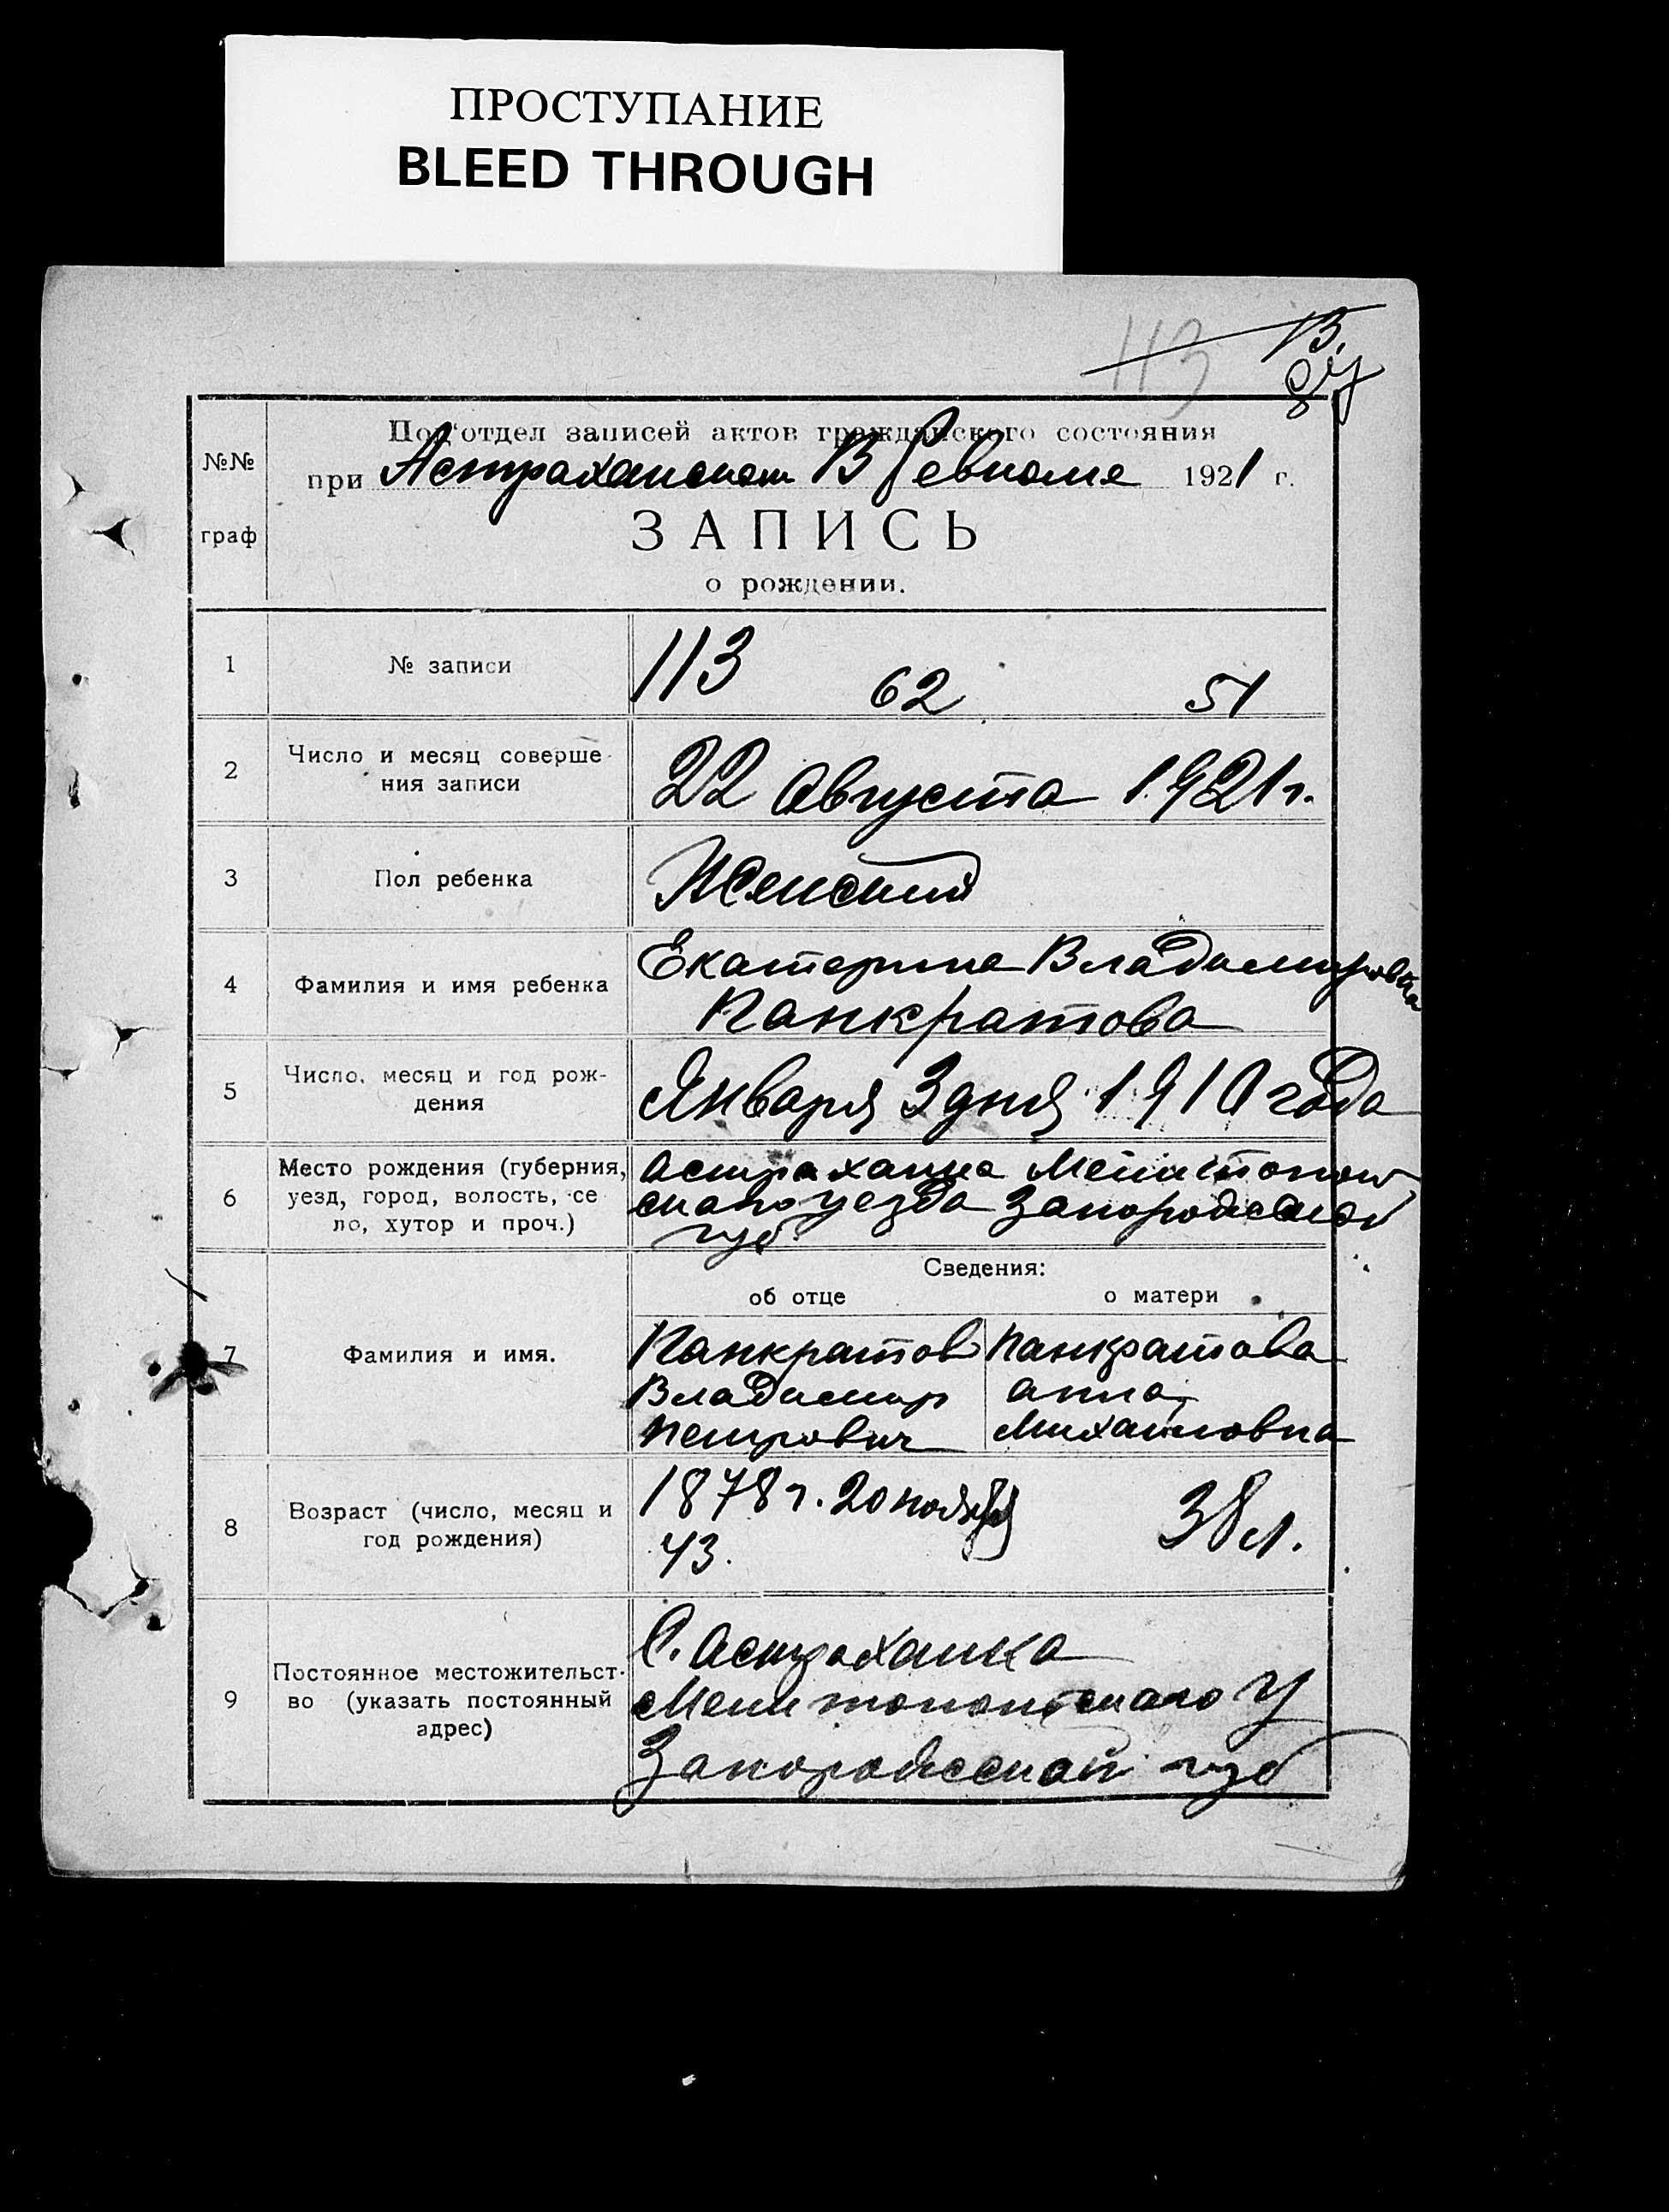 ПРОСТУПАНИЕ
BLEED THROUGH
113
13.
Под'отдел записей актов гражданского состояния
№№ граф
при Астраханском В Ревкоме 1921 г.
ЗАПИСЬ
о рождении.
1 № записи 113 62 51
2 Число и месяц соверше-
ния записи
22 Августа 1921 г.
3 Пол ребенка Женский
4 Фамилия и имя ребенка
Екатерина Владимировна
Панкратова
5 Число, месяц и год рож-
дения
Января 3 дня 1910 года
6 Место рождения (губерния,
уезд, город, волость, се
ло, хутор и проч.)
Астраханка Мелитополь
скаго уезда Запорожской
губ.
Сведения:
об отце о матери
7 Фамилия и имя.
Панкратов
Владимир
Петрович
Панкратова
Анна
Михайловна
8 Возраст (число, месяц и
год рождения)
1878 г. 20 ноября
43.
38 л.
9 Постоянное местожительст-
во (указать постоянный
адрес)
С. Астраханка
Мелитопольскаго У
Запорожской губ